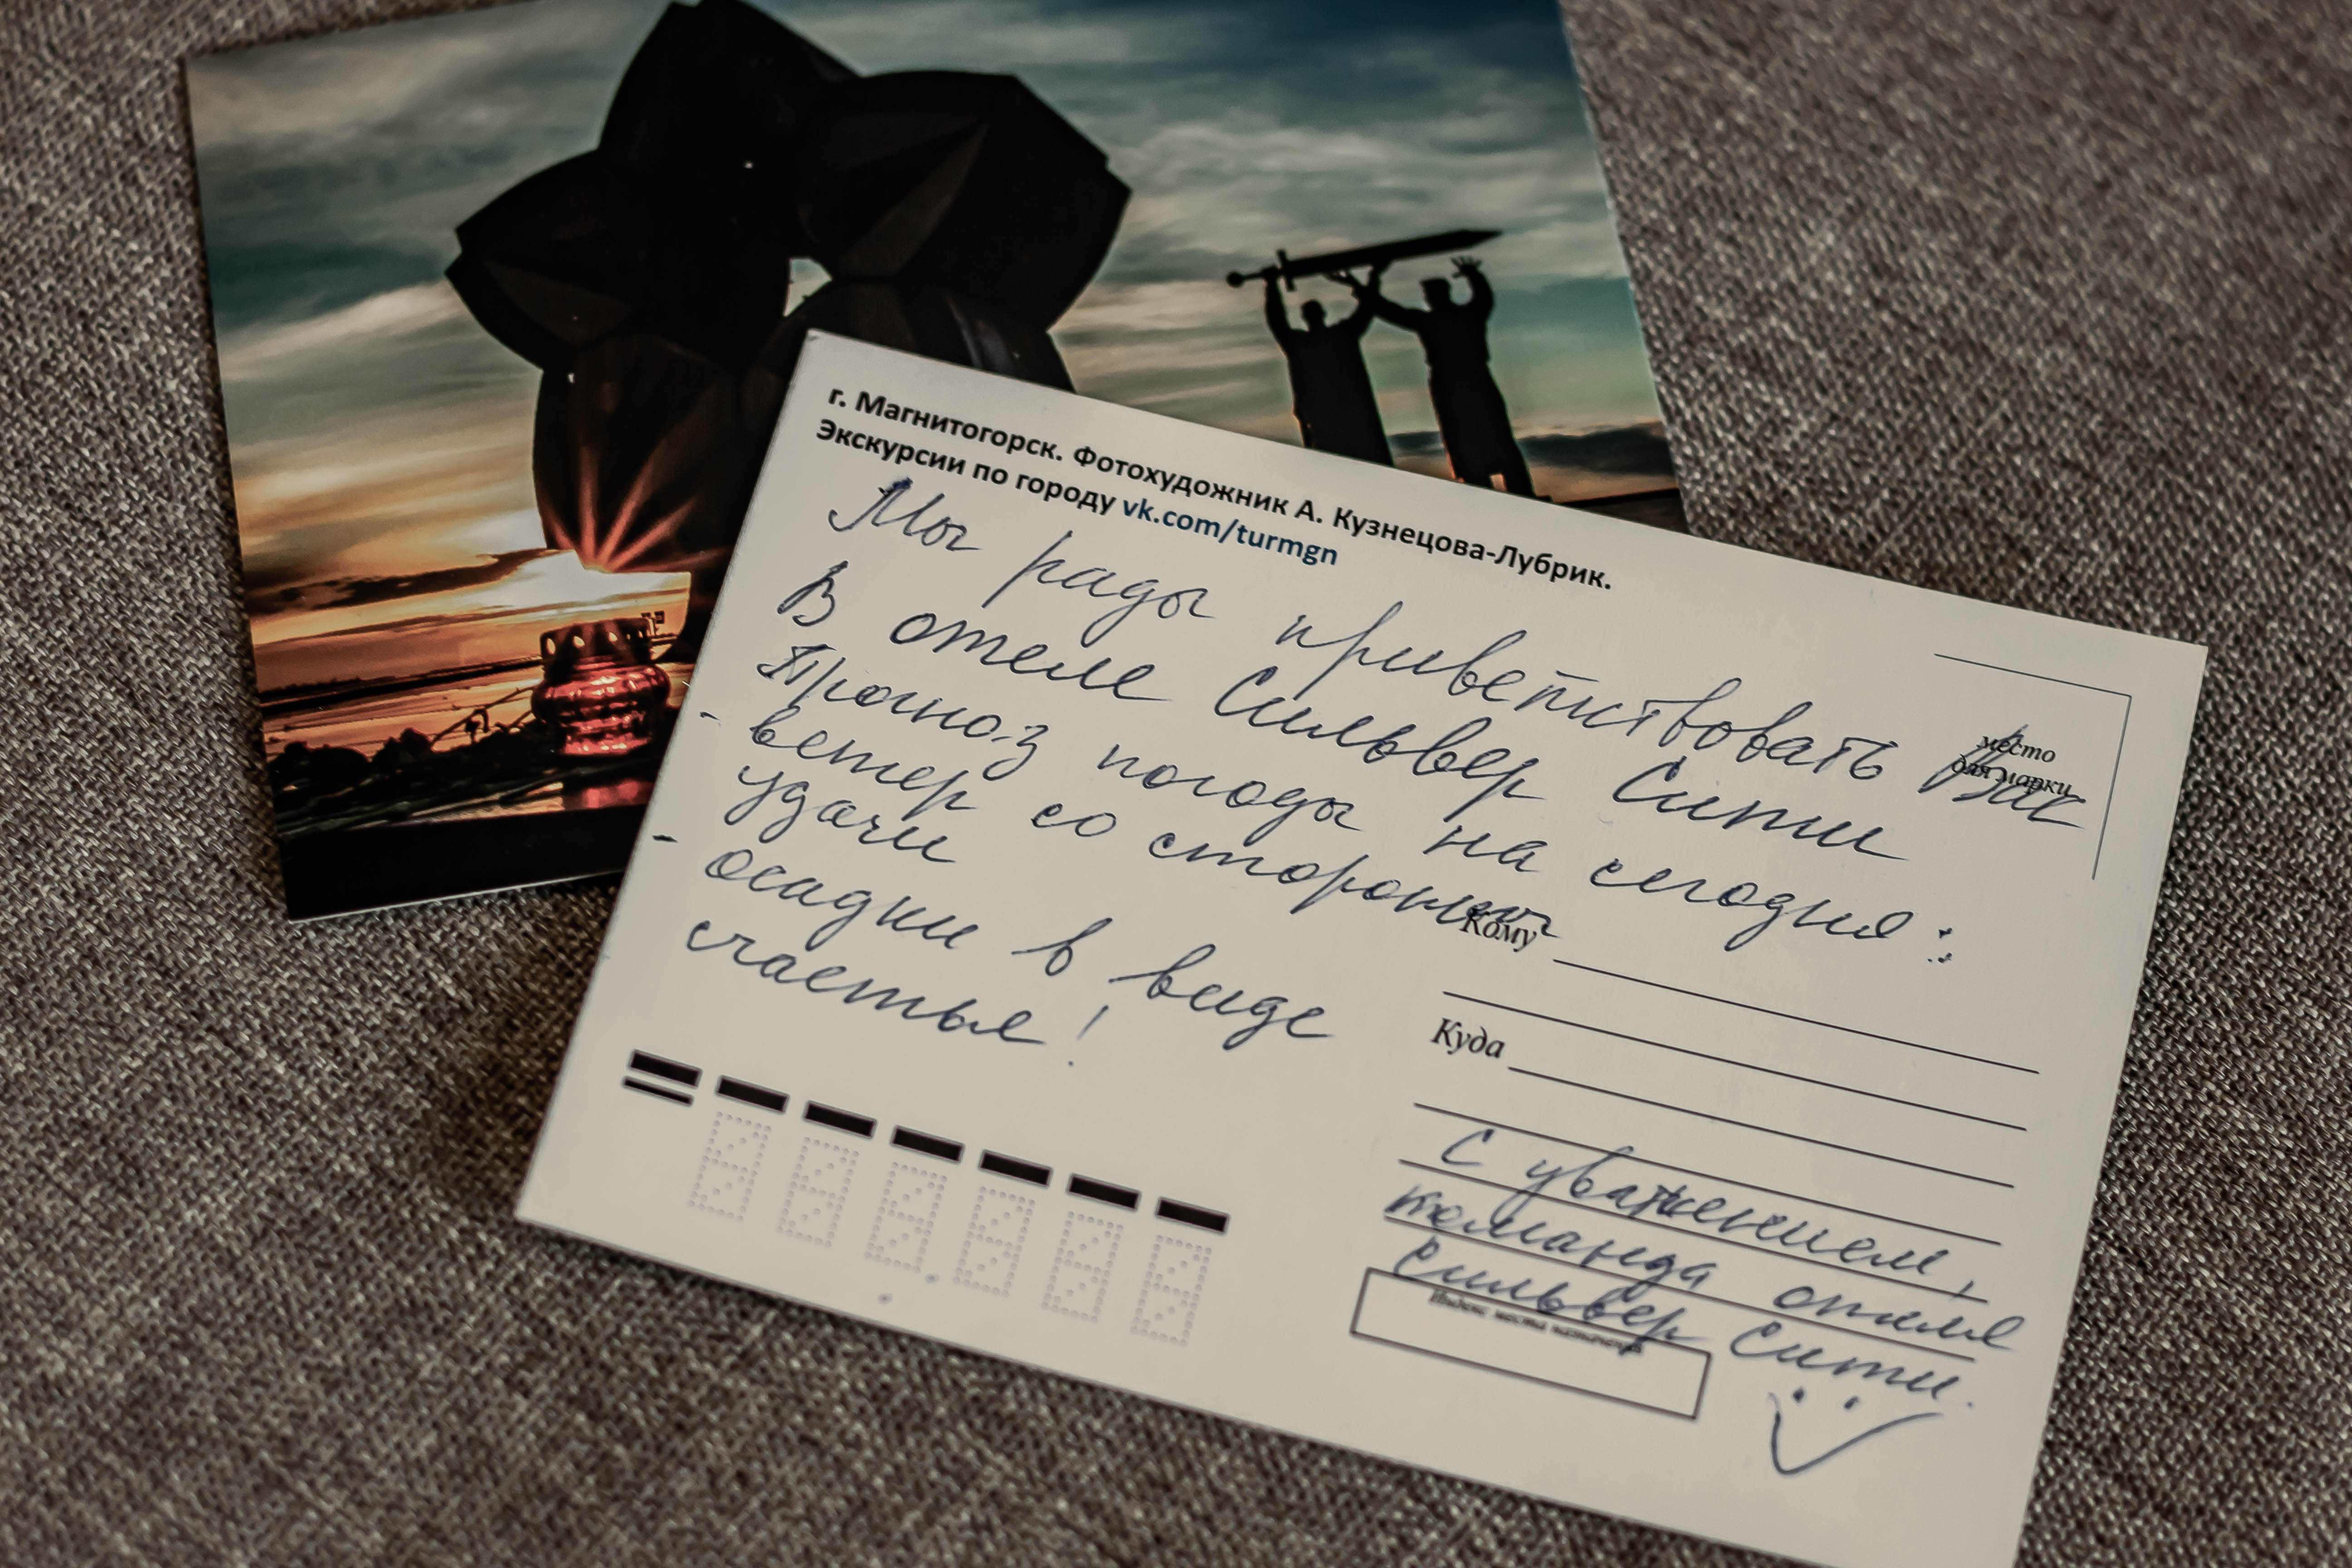 г. Магнитогорск. Фотохудожник А. Кузнецова-Лубрик.
Экскурсии по городу vk.com/turmgn
Мы рады приветствовать Вас
В отеле Сильвер Сити
Прогноз погоды на сегодня:
- ветер со стороны
удачи
- осадки в виде
счастья!
место
для марки
Кому
Куда
С уважением,
команда отеля
Сильвер Сити.
Индекс места назначения